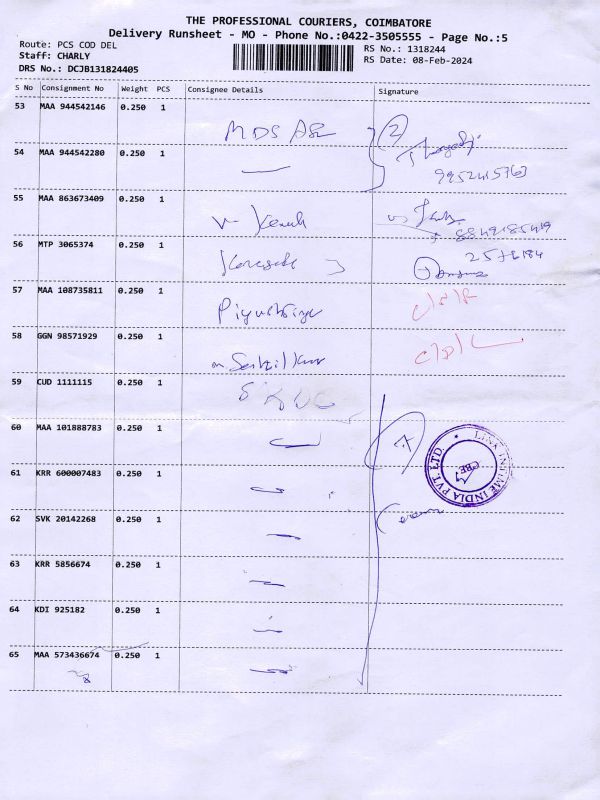 THE PROFESSIONAL COURIERS, COIMBATORE
Delivery Runsheet - MO - Phone No.:0422-3505555 - Page No.:5
Route: PCS COD DEL
RS No.: 1318244
Staff: CHARLY
RS Date: 08-Feb-2024
DRS No.: DCJB131824405
S No Consignment No Weight PCS Consignee Details Signature
53 MAA 944542146 0.250 1
MDS
2
54 MAA 944542280 0.250 1
9952415763
55 MAA 863673409 0.250 1
8849185419
56 MTP 3065374 0.250 1
57 MAA 108735811 0.250 1
58 GGN 98571929 0.250 1
59 CUD 1111115 0.250 1
60 MAA 101888783 0.250 1
7
LINK INTIME INDIA PVT. LTD.
CBE
61 KRR 600007483 0.250 1
62 SVK 20142268 0.250 1
63 KRR 5856674 0.250 1
64 KDI 925182 0.250 1
65 MAA 573436674 0.250 1